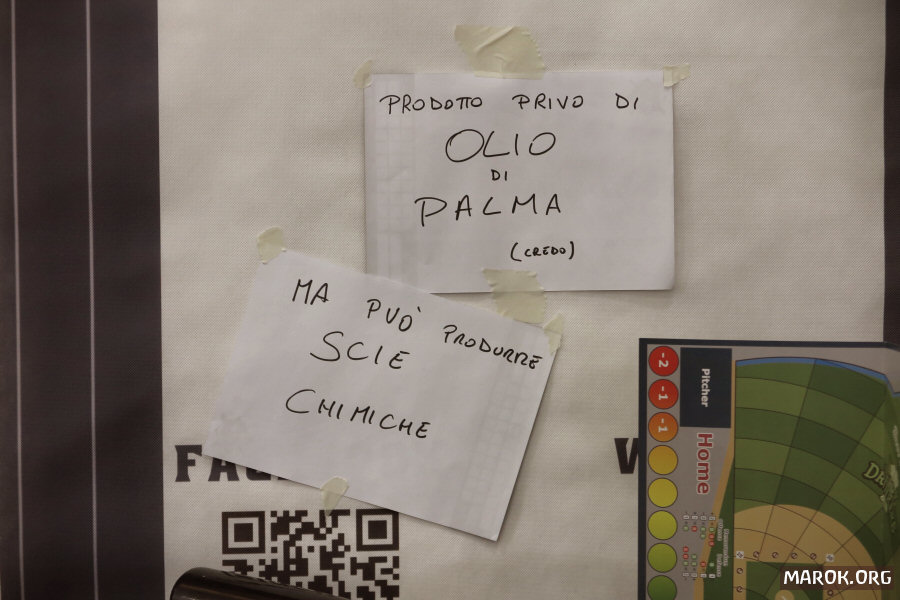 PRODOTTO PRIVO DI
OLIO
DI
PALMA
(CREDO)
MA PUÒ PRODURRE
SCIE
CHIMICHE
-2
-1
-1
Pitcher
Home
MAROK.ORG